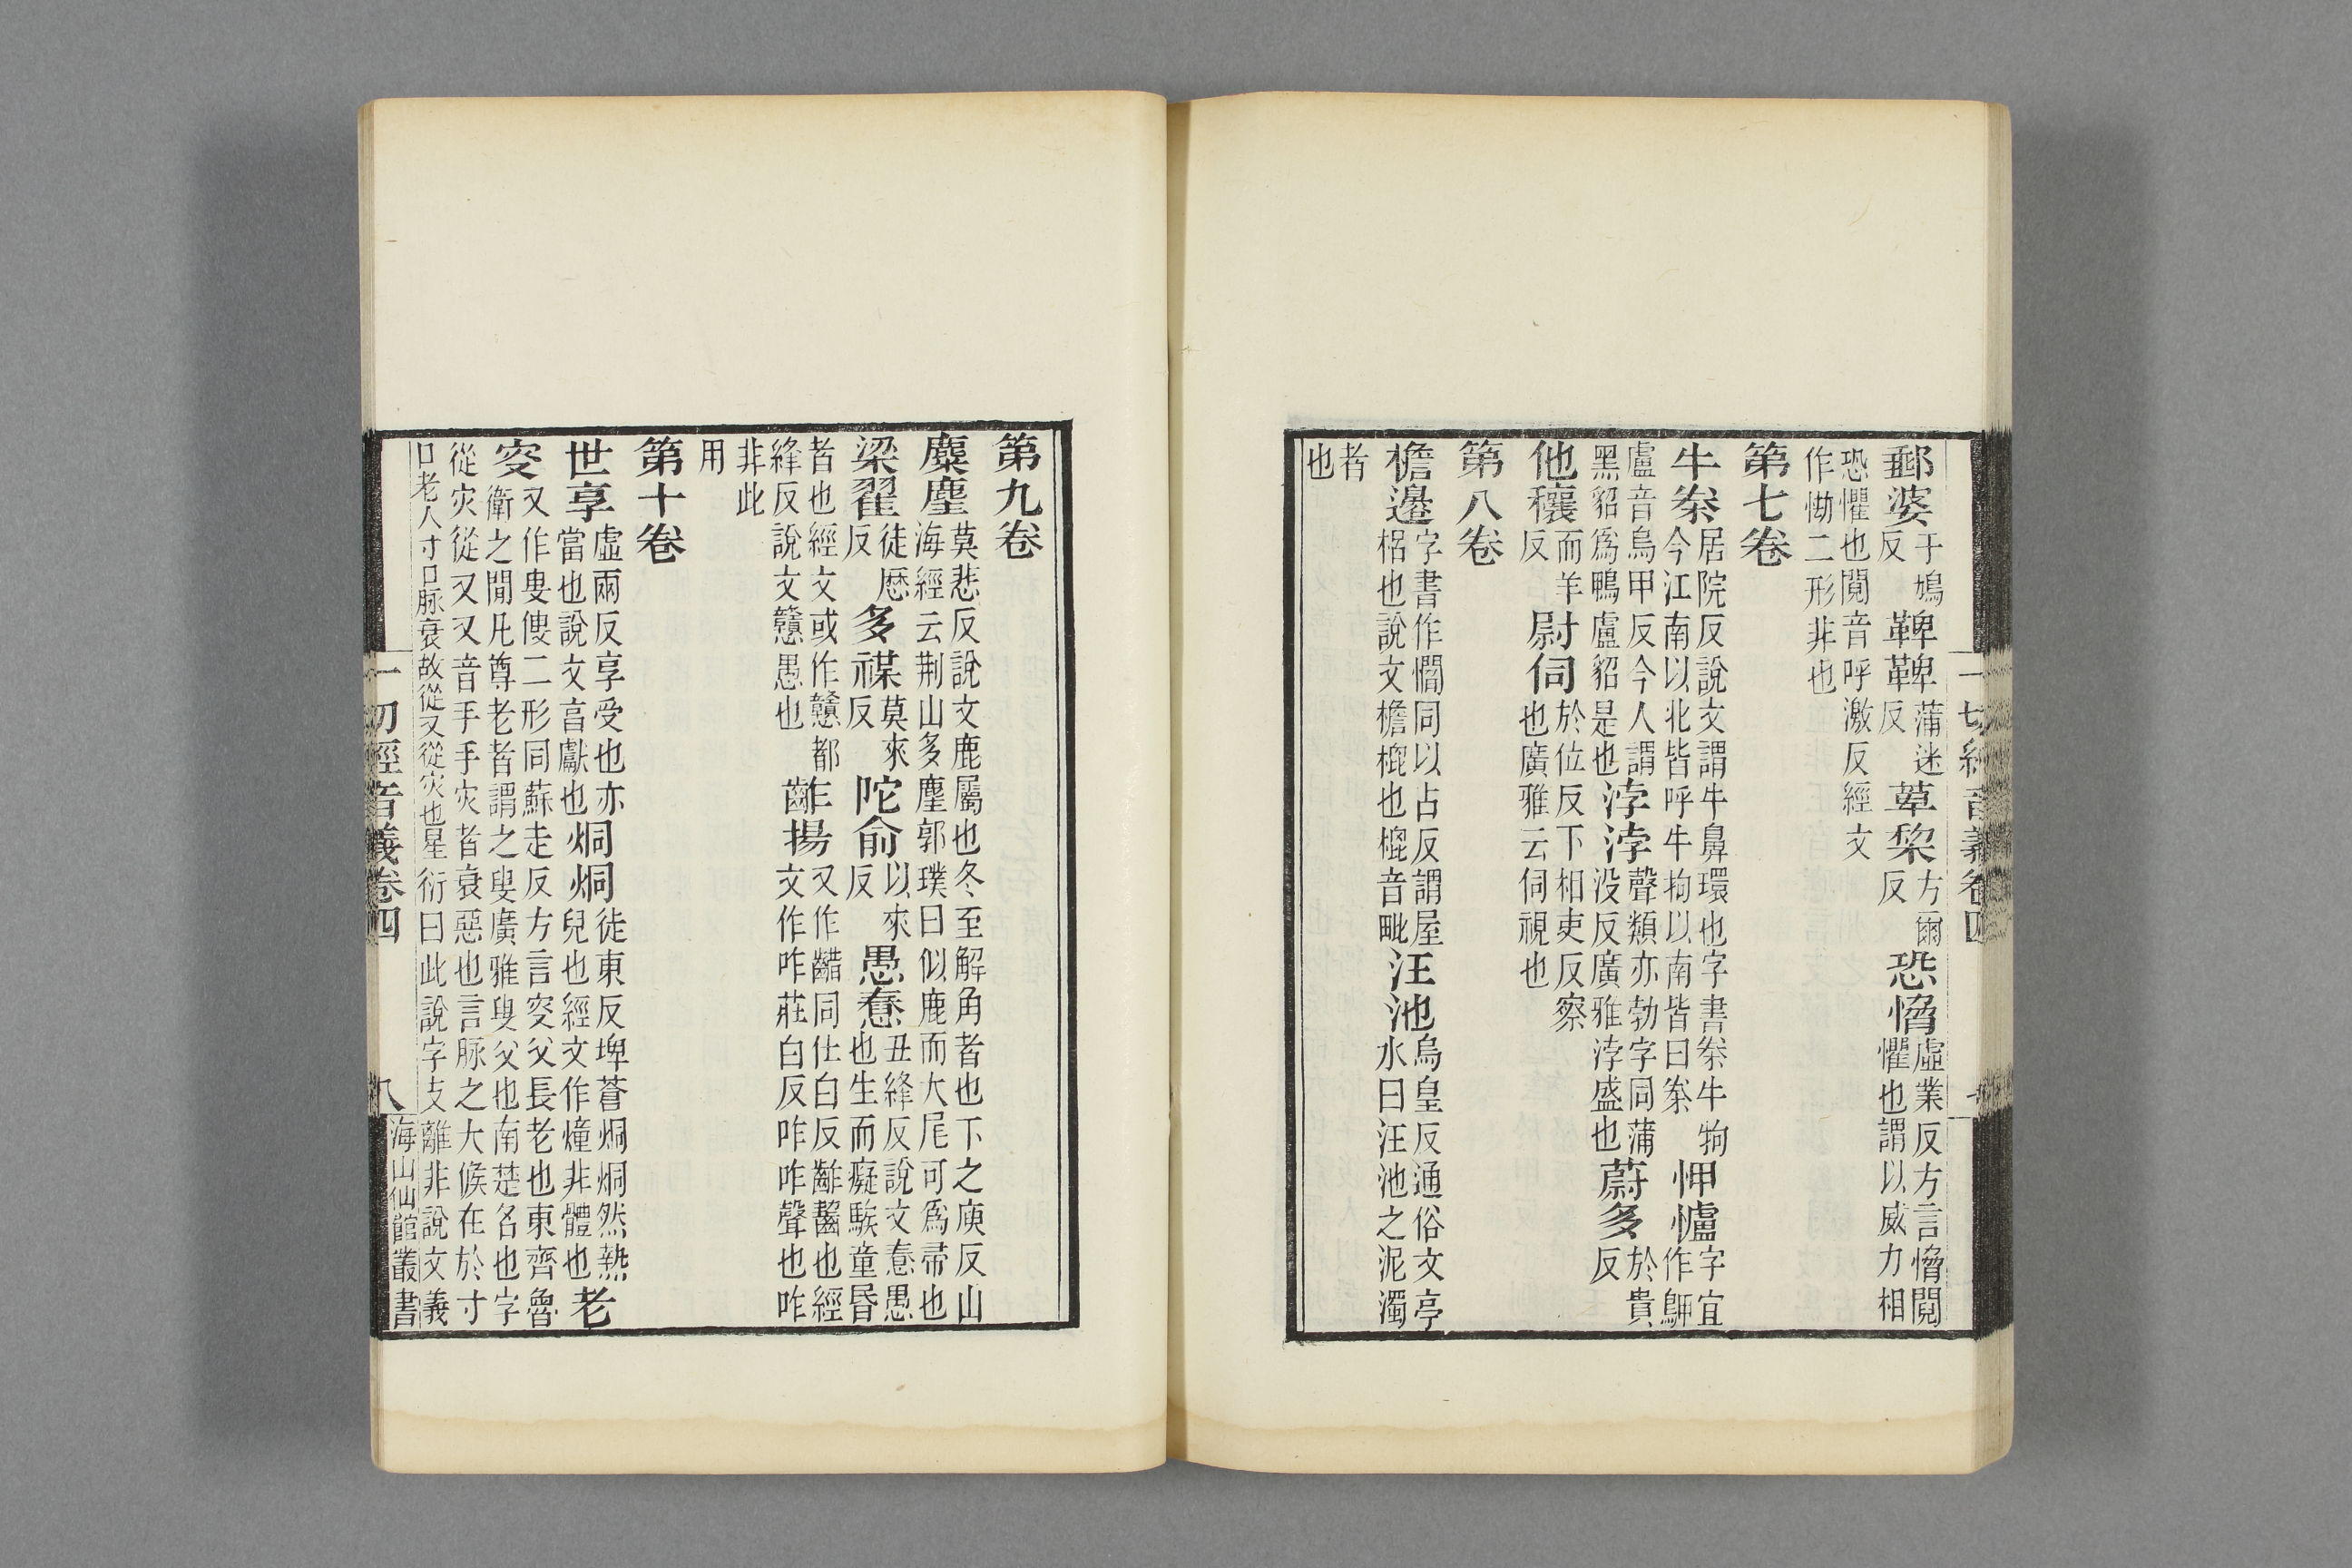 郵婆于鳩反鞞鞞蒲迷反草棃方爾反恐愶虛業反方言愶鬩懼也謂以威力相
恐懼也鬩音呼激反經文作㗾二形非也
第七卷
牛桊居院反說文謂牛鼻環也字書桊牛拘今江南以北皆呼牛拘以南皆曰桊㤉㠠字宜作鵯
盧音烏甲反今人謂黑貂爲鴨盧貂是也浡浡聲類亦勃字同蒲没反廣雅浡盛也蔚多於貴反
他穰而羊反尉伺於位反下相吏反察也廣雅云伺視也
第八卷
檐邊字書作櫩同以占反謂屋梠也說文檐梍也梍音毗汪池烏皇反通俗文亭水曰汪池之泥濁
者也
第九卷
麋麈莫悲反說文鹿屬也冬至解角者也下之庾反山海經云荆山多麈郭璞曰似鹿而大尾可爲帚也
梁翟徒厯反多禖莫來反陀俞以來反愚惷丑絳反說文惷愚也生而癡騃童昬
者也經文或作戇都絳反說文戇愚也齚揚又作齰同仕白反齚齧也經文作咋莊白反咋咋聲也咋
非此用
第十卷
世享虛兩反享受也亦當也說文亯獻也烔烔徒東反埤蒼烔烔然熱皃也經文作爞非體也老
叜又作叟傁二形同蘇走反方言叜父長老也東齊魯衛之閒凡尊老者謂之叟廣雅叟父也南楚名也字
從灾從又又音手手灾者衰惡也言脉之大候在於寸口老人寸口脉衰故從又從灾也星衍曰此說字支離非說文義
一切經音義卷四
八
海山仙館叢書